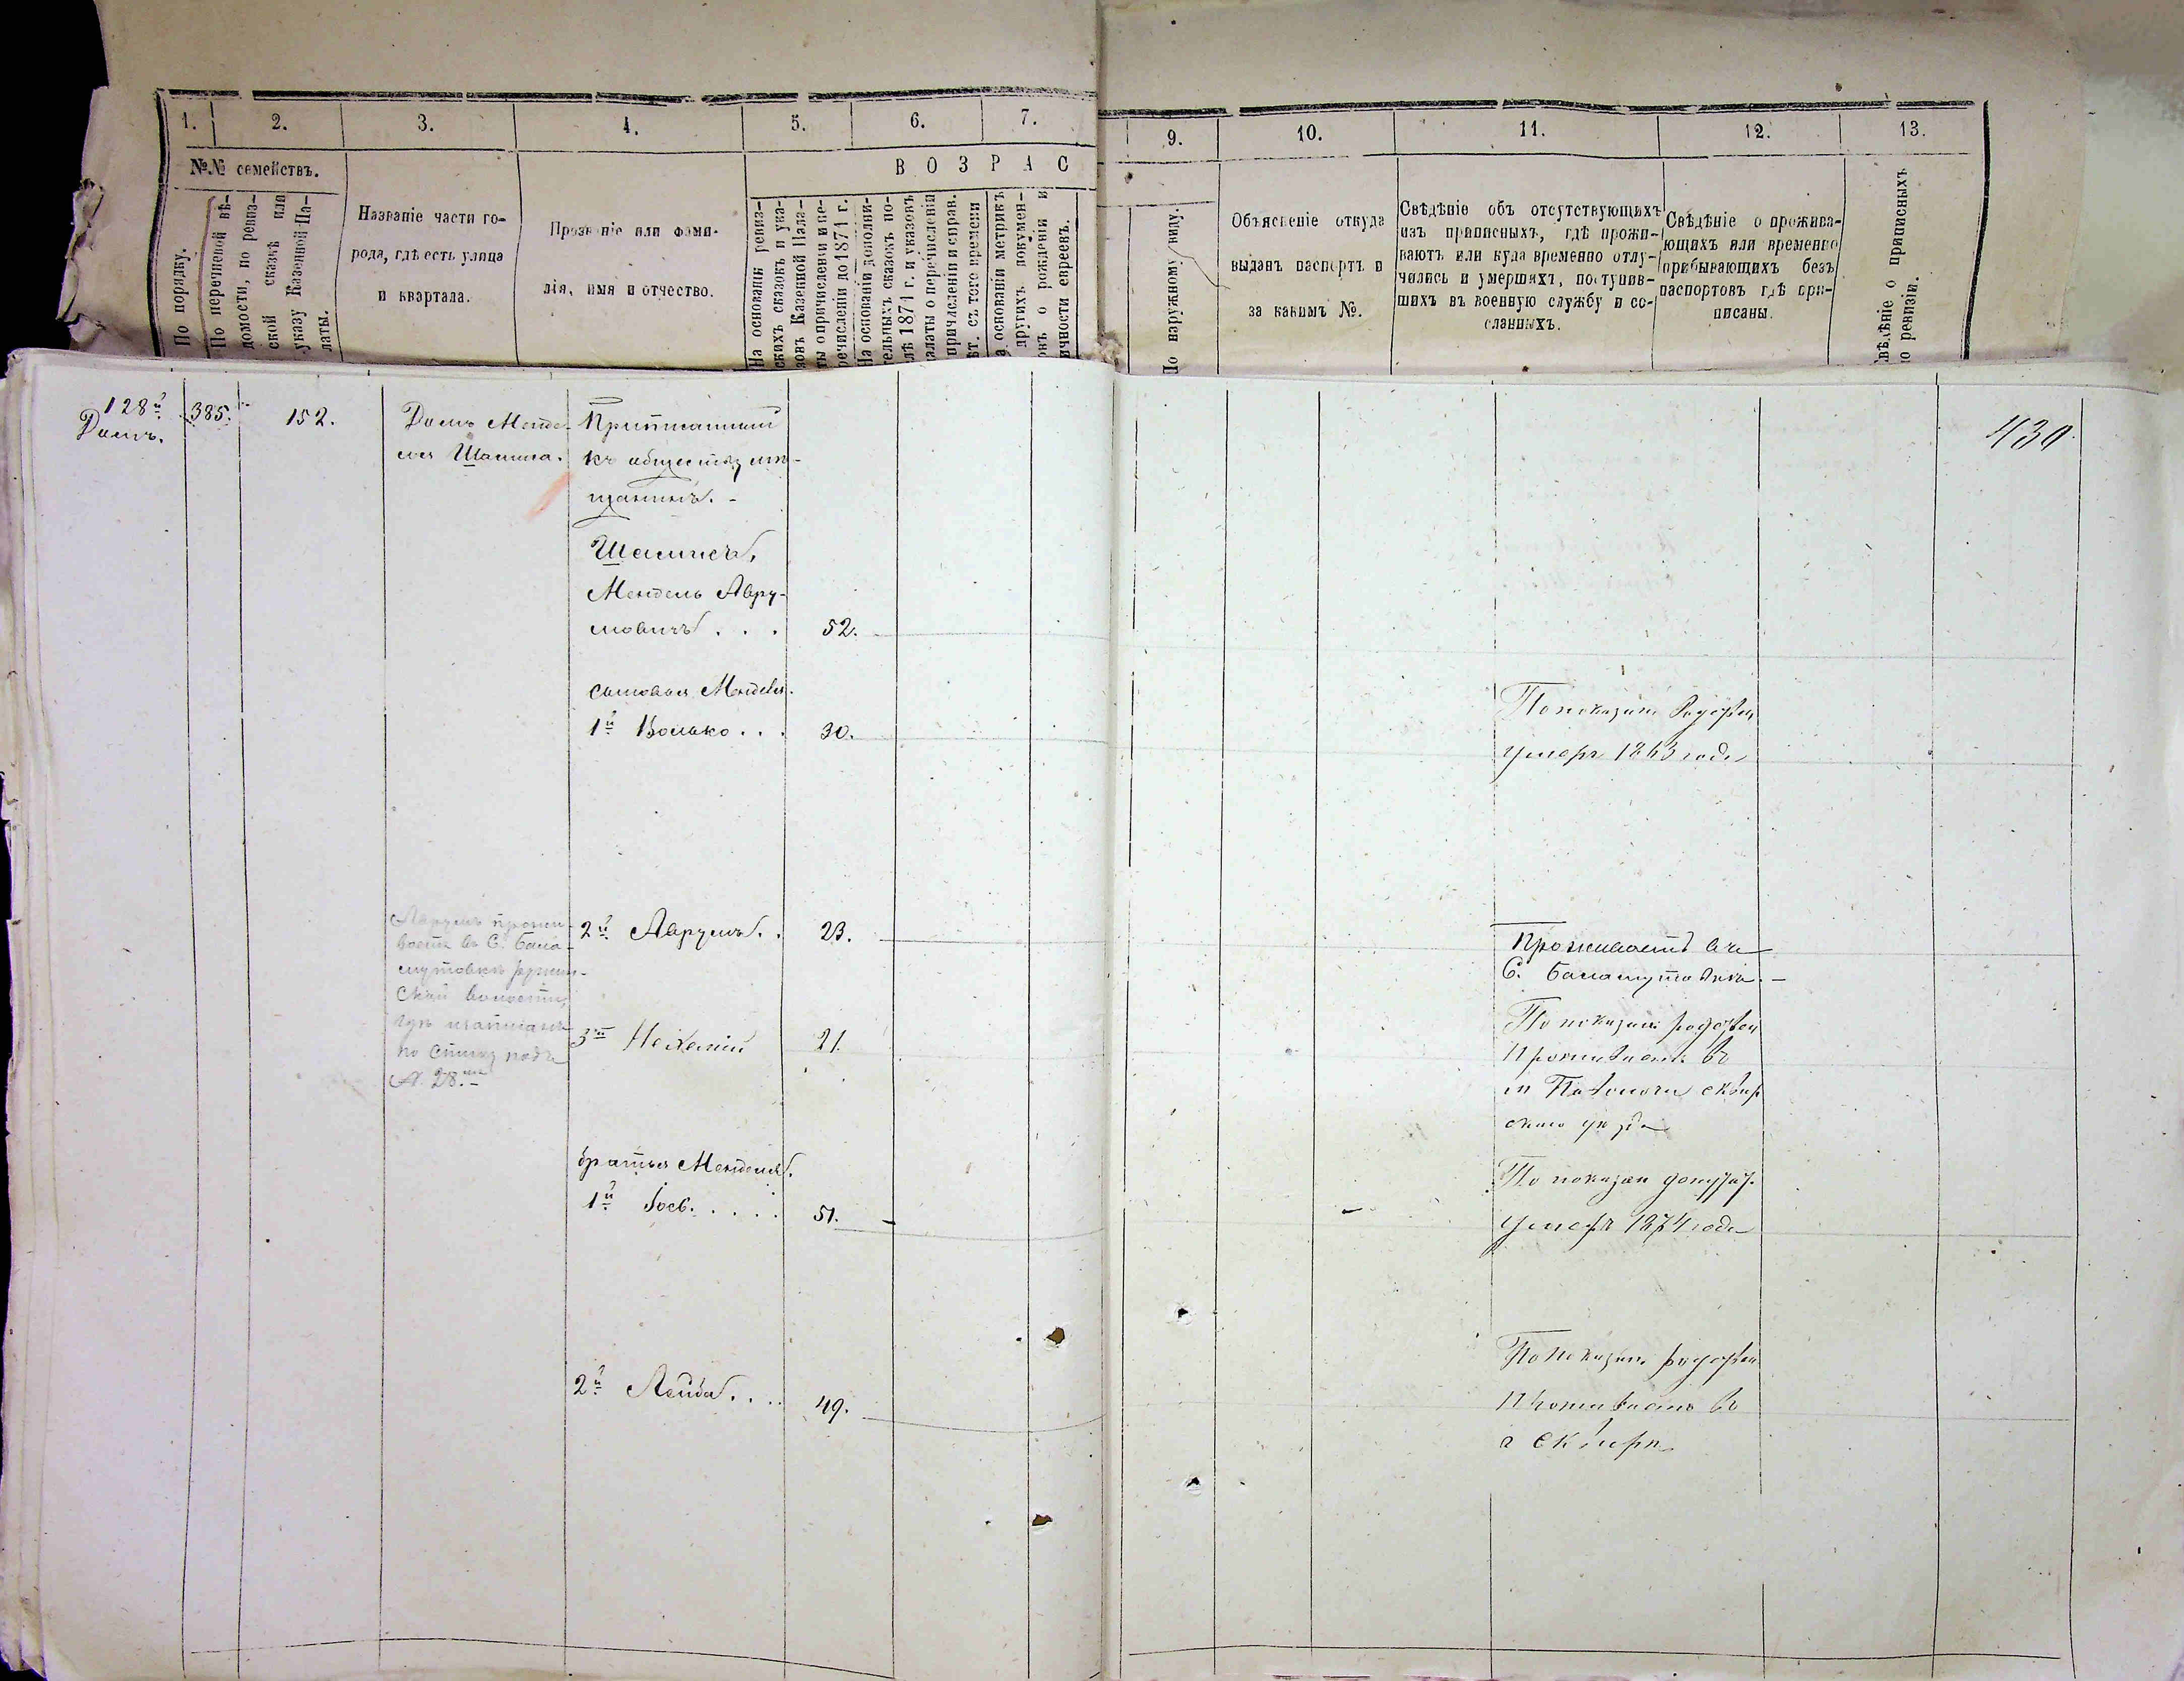 1.
2.
3.
4.
5.
6.
7.
9.
10.
11.
12.
13.
№№ семействъ.
В О З Р А С
По порядку.
По перечневой вѣ-
домости, по ревиз-
ской сказкѣ или
указу Казенной Па-
латы.
Названіе части го-
рода, гдѣ есть улица
и квартала.
Прозваніе или фами-
лія, имя и отчество.
На основаніи ревиз-
скихъ сказокъ и ука-
зовъ Казенной Пала-
ты о причисленіи и пе-
речисленіи до 1874 г.
На основаніи дополни-
тельныхъ сказокъ по-
слѣ 1874 г. и указовъ
палаты о перечисленіи
причисленіи и справ.
лѣт. съ того времени
а основаніи метрикъ
другихъ докумен-
овъ о рожденіи и
ичности евреевъ.
По наружному виду.
Объясненіе откуда
выданъ паспортъ и
за какимъ №.
Свѣдѣніе объ отсутствующихъ
изъ приписныхъ, гдѣ прожи-
ваютъ или куда временно отлу-
чились и умершихъ, поступив-
шихъ въ военную службу и со-
сланныхъ.
Свѣдѣніе о прожива-
ющихъ или временно
прибывающихъ безъ
паспортовъ гдѣ при-
писаны.
Свѣдѣніе о приписныхъ
по ревизіи.
128й
Домъ.
385.
152.
Домъ Менде-
ля Шамиса.
Приписанный
къ обществу мѣ-
щанинъ.
Шамисъ,
Мендель Авру-
мовичъ . . . 52.
сыновья Менделя.
1й Волько . . . 30.
По показанію
умеръ 1863 года
2й Аврумъ . . 23.
Аврумъ прожи-
ваетъ въ С. Бала-
мутовкѣ
ской волости,
гдѣ и записанъ
по списку подъ
№ 28.мъ
Проживаетъ въ
С. Баламутовкѣ.
3й Нехемій 21.
По показанію
проживаетъ въ
м Паволочи сквир
скаго уѣзда
братья Менделя.
1й Іосъ . . . . . 51.
По показан депутат.
умеръ 1874 года
2й Лейба . . . . 49.
По показанію
Проживаетъ въ
г Сквирѣ
430.